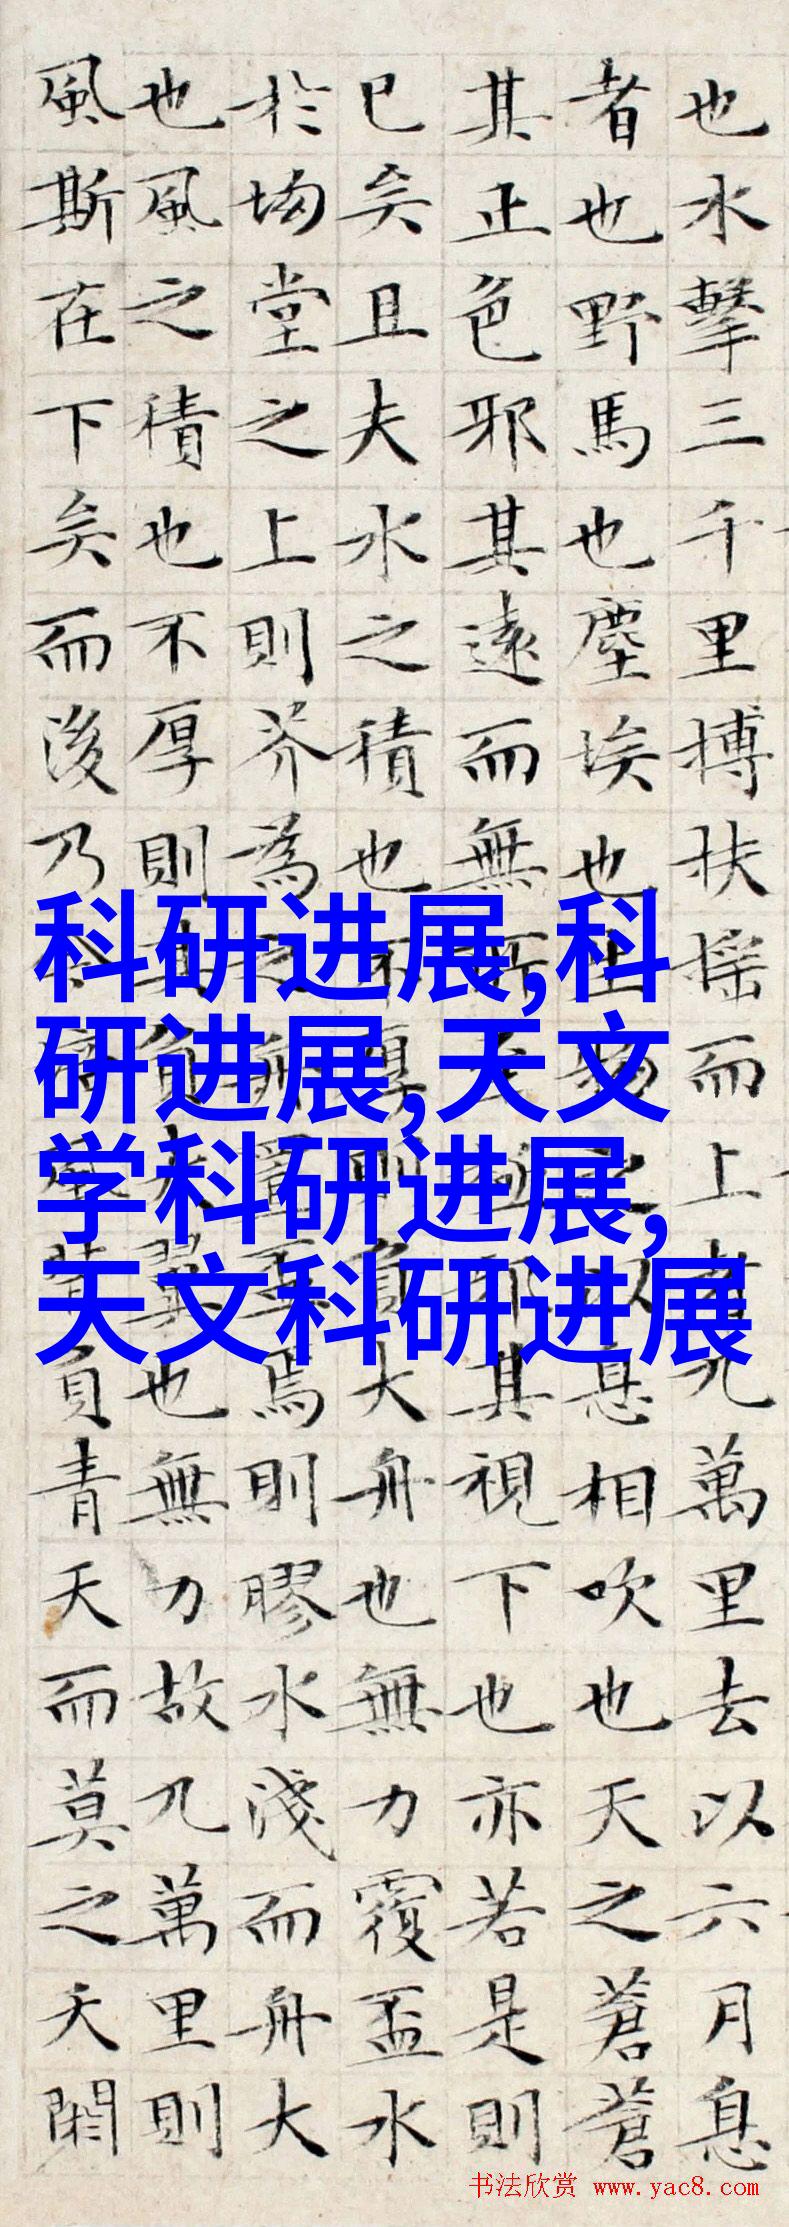 也水擊三千里搏扶摇而上者九萬里去以六月息
者也野馬也塵埃也生物之以息相吹也天之蒼蒼
其正色邪其遠而無所至極邪其視下也亦若是則
已矣且夫水之積也不厚則負大舟也無力覆盃水
於坳堂之上則芥為之舟置盃焉則膠水淺而舟大
也風之積也不厚則其負大翼也無力故九萬里則
風斯在下矣而後乃今培風背負青天而莫之夭閼
科研进展,科
研进展,天文
学科研进展,
天文科研进展
书法欣赏 www.yac8.com